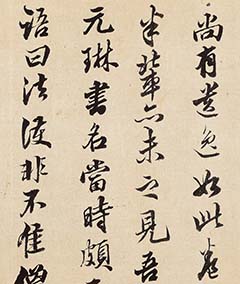 尚有遗逸如此卷
半輩亦未之見吾
元琳書名當時頗
语曰法護非不佳僧